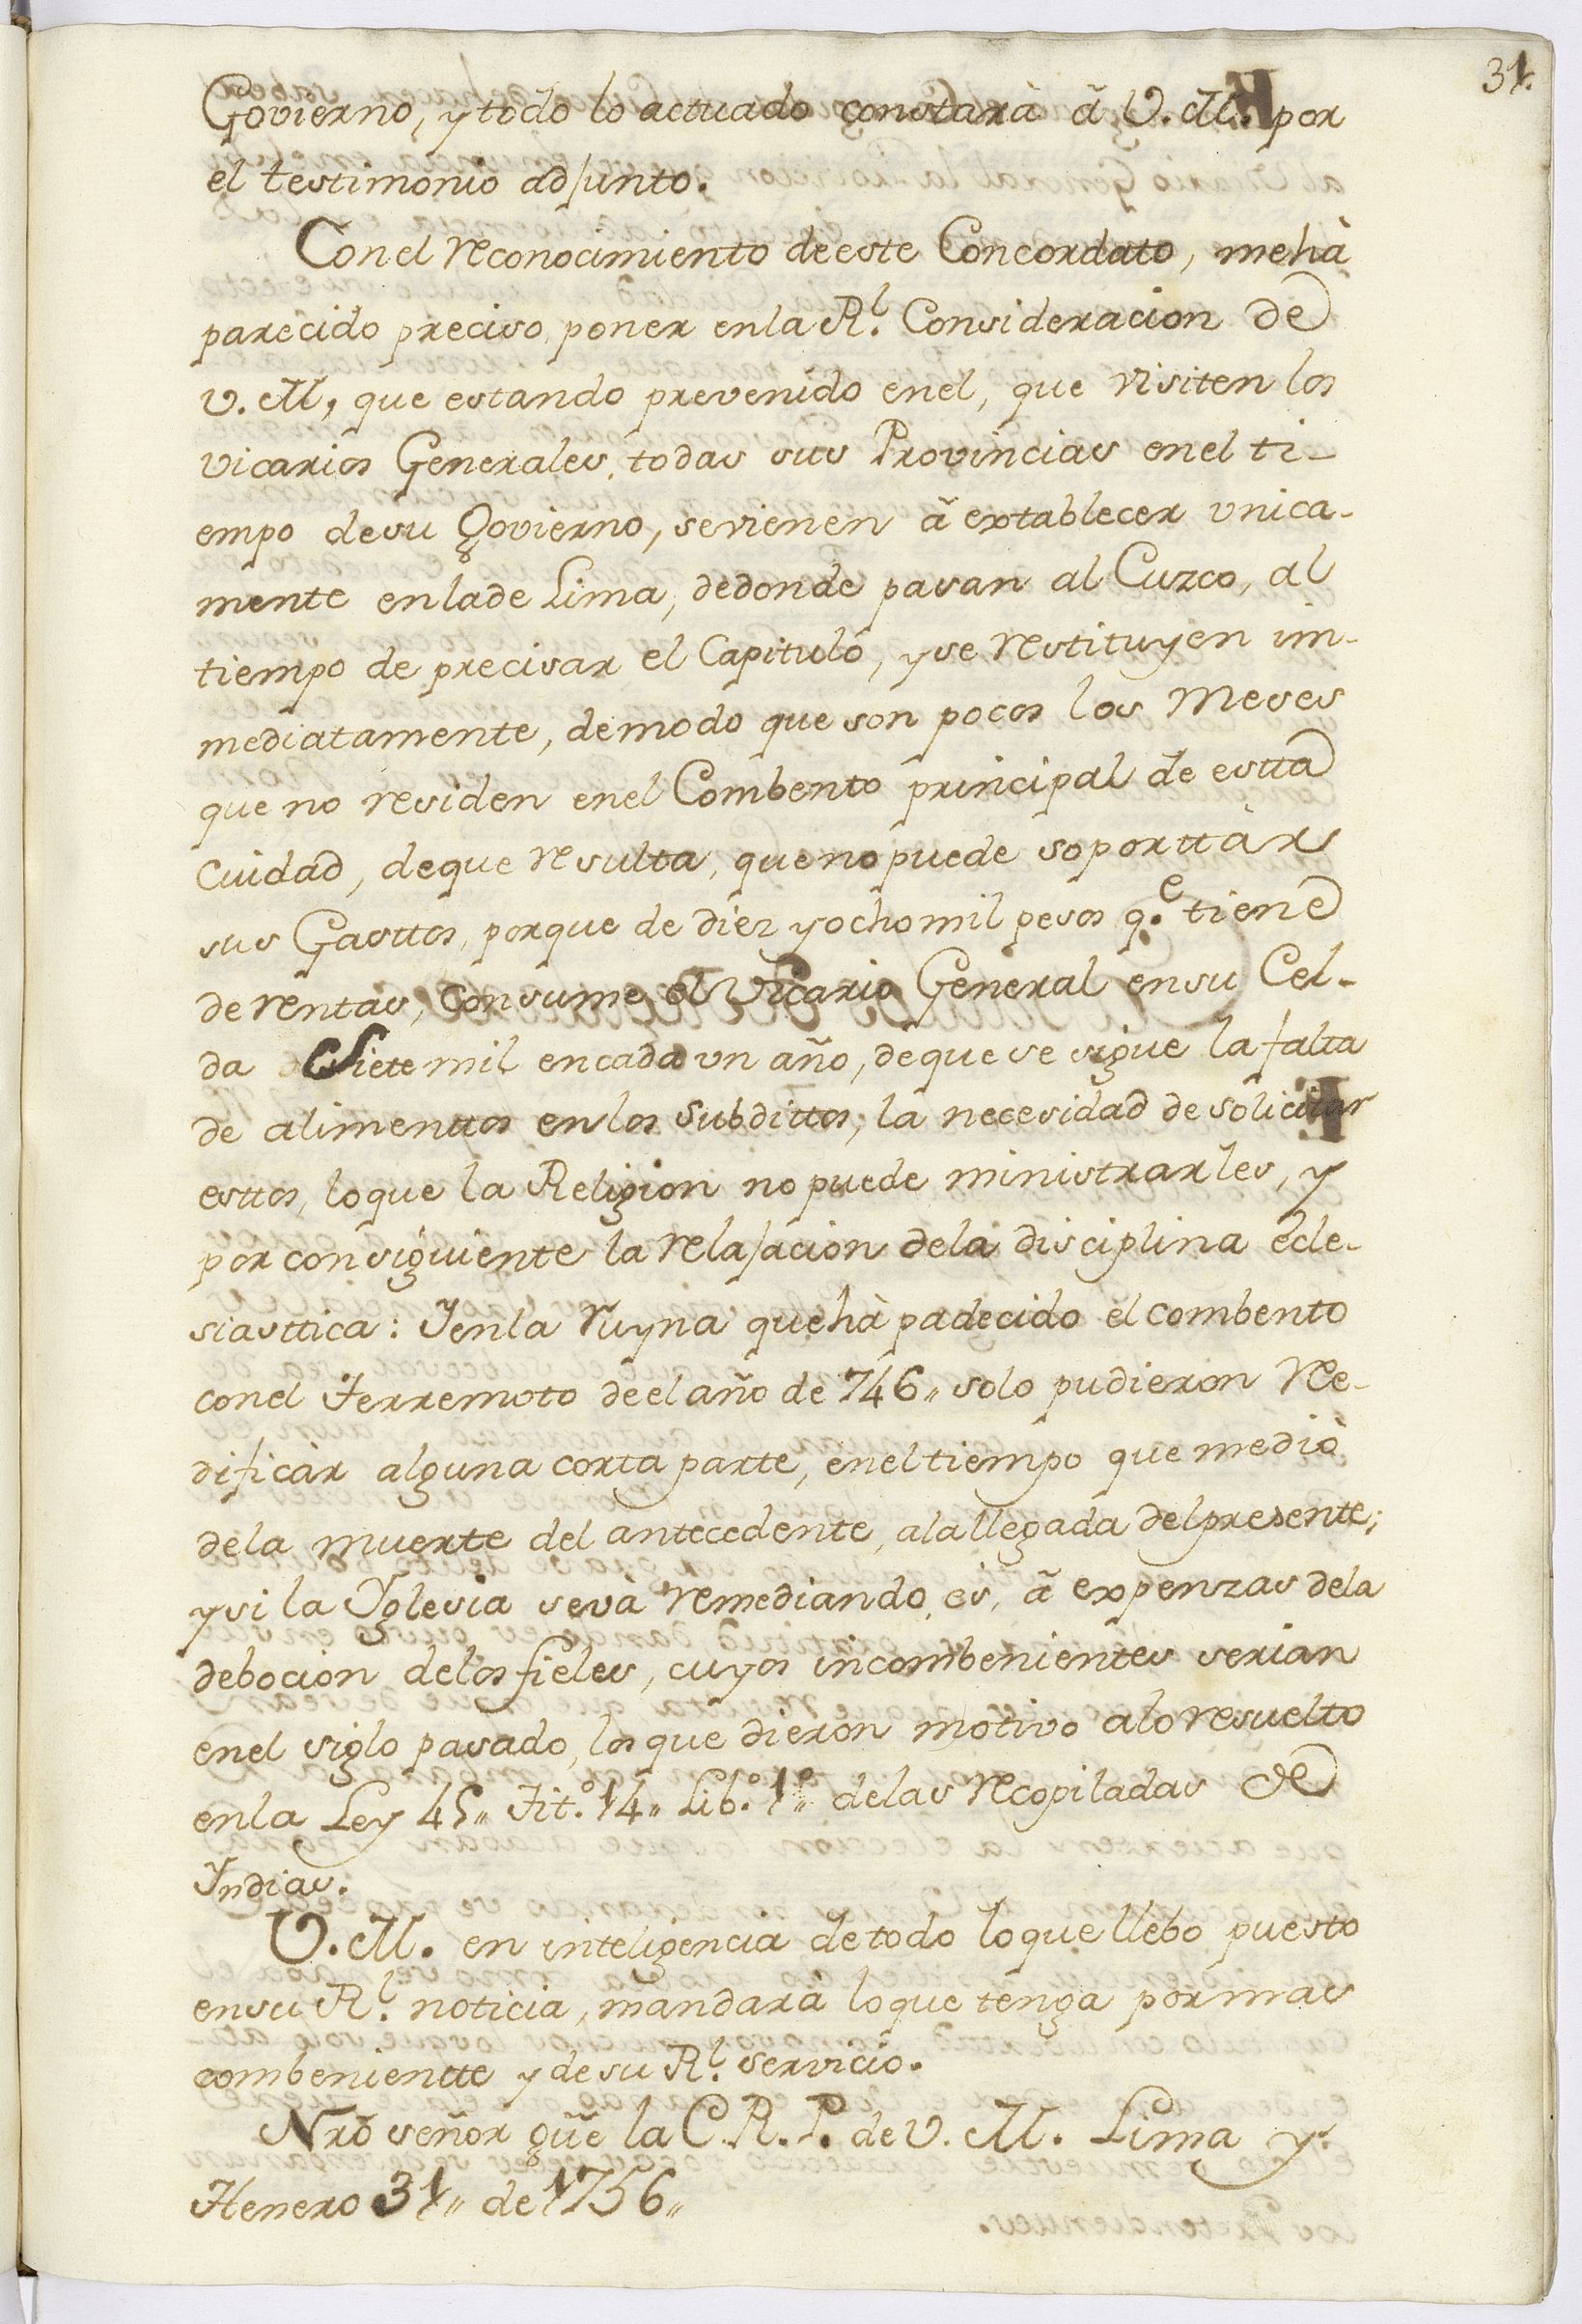 31.
Govierno, y todo lo actuado constarà ã V. M. por
el testimonio adjunto.
Con el reconocimiento de este Concordato, mehà
parecido preciso poner en la Rl. Consideracion de
V. M, que estando prevenido enel, que visiten los
vicarios Generales, todas sus Provincias enel ti-
empo de su Govierno, se vienen ã extablecer vnica-
mente enlade Lima, dedonde pasan al Cuzco, al
tiempo de precisar el Capitulo, y se restituyen im-
mediatamente, demodo que son pocos los Meses
que no residen enel Combento principal de estta
Cuidad, deque resulta, que no puede soporttàr
sus Gasttos, porque de diez y ocho mil pesos q.e tiene
de rentas, consume el Vicario General ensu Cel-
da Siete mil encada vn año, deque se sigue la falta
de alimenttos en los Subdittos, la necesidad de solicitar
esttos, lo que la Religion no puede ministrarles, y
por consiguiente la relajacion dela disciplina ecle-
siasttica: Yenla ruyna quehà padecido el combento
conel Terremoto de el año de 746,, solo pudieron Re-
dificàr alguna corta parte, enel tiempo que mediò
dela muerte del antecedente, ala llegada del presente;
y si la Yglesia sevà remediando, es, ã expenzas dela
debocion delos fieles, cuyos incombenientes serian
enel siglo pasado, los que dieron motivo alo resuelto
enla Ley 45,, Tit.º 14,, Lib.º 1º,, delas recopiladas de
Yndias.
V. M. en inteligencia de todo lo que llebo puesto
ensu Rl. noticia, mandarà lo que tenga por mas
combenientte y de su Rl. servicio.
Nrõ señor gũe la C. R. P. de V. M. Lima y
Henero 31,, de 1756,,